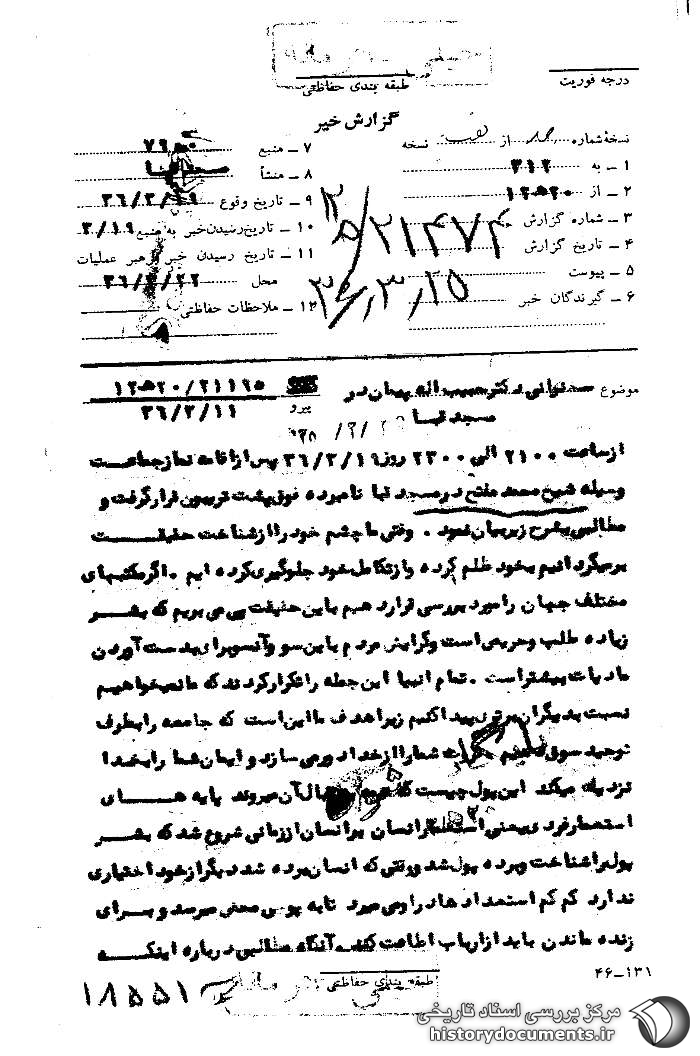 خیلی محرمانه
طبقه بندی حفاظتی
درجه فوریت
گزارش خبر
نسخهٔ شماره از نسخه
۱ ــ به ۳۱۲
۲ ــ از ۲۰ هـ ۱۲
۳ ــ شماره گزارش
۴ ــ تاریخ گزارش
۵ ــ پیوست
۶ ــ گیرندگان خبر
۷ ــ منبع
۸ ــ منشأ
۹ ــ تاریخ وقوع ۳۶/۳/۱۹
۱۰ ــ تاریخ رسیدن خبر به منبع ۳/۱۹
۱۱ ــ تاریخ رسیدن خبر به رهبر عملیات
محل ۳۶/۳/۲۲
۱۲ ــ ملاحظات حفاظتی
موضوع سخنرانی دکتر حبیب اله پیمان در
مسجد قبا
۲۰/۲۱۱۶۵ هـ ۱۲
پیرو ۳۶/۳/۱۱
از ساعت ۲۱۰۰ الی ۲۳۰۰ روز ۳۶/۳/۱۹ پس از اقامه نماز جماعت
وسیله شیخ محمد مفتح در مسجد قبا نامبرده فوق پشت تریبون قرار گرفت و
مطالبی بشرح زیر بیان نمود . وقتی ما چشم خود را از شناخت حقیقت
برمیگردانیم بخود ظلم کرده و از تکامل خود جلوگیری کرده ایم . اگر مکتبهای
مختلف جهان را مورد بررسی قرار دهیم باین حقیقت پی می بریم که بشر
زیاده طلب و حریص است و گرایش مردم باین سو و آنسو برای بدست آوردن
مادیات بیشتر است . تمام انبیا این جمله را تکرار کردند که ما نمیخواهیم
نسبت بدیگران برتری پیدا کنیم زیرا هدف ما این است که جامعه را بطرف
توحید سوق دهیم شما را از خدا دور می سازد و ایمان شما را بخدا
نزدیک میکند این پول چیست که همه بدنبال آن میروند پایه های
استعمار فردی یعنی استعمار انسان بر انسان از زمانی شروع شد که بشر
پول را شناخت و برده پول شد و وقتی که انسان برده شد دیگر از خود اختیاری
ندارد کم کم استعدادها در او می میرد تا به پوچی معنی میرسد و برای
زنده ماندن باید از ارباب اطاعت کند . آنگاه مطالبی درباره اینکه
طبقه بندی حفاظتی
۱۳۱ــ۴۶
۱۸۵۵۱۳
مرکز بررسی اسناد تاریخی
historydocuments.ir